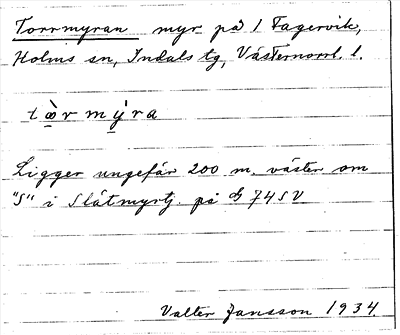 Torrmyran myr på 1 Fagervik,
Holms sn, Indals tg, Västernorrl. l.
tæ̀r mỳra
Ligger ungefär 200 m. väster om
"S" i Slåtmyrtj. på G 74 SV
Valter Jansson 1934.